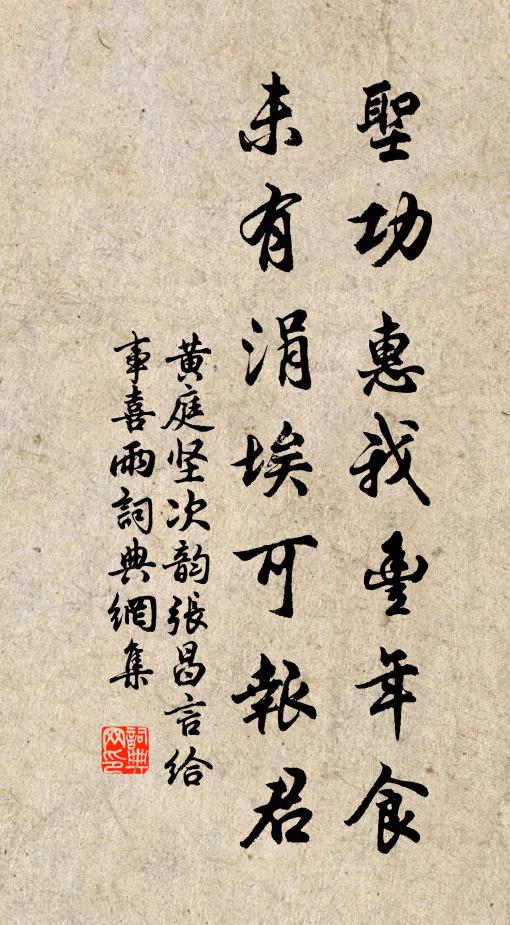 聖功惠我豊年食
未有涓埃可報君
黄庭坚次韵張昌言給
事喜雨詞典網集
詞典网印